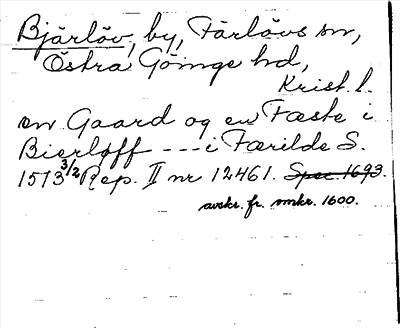 Bjärlöv, by, Färlövs sn,
Östra Göinge hd,
Krist. l.
en Gaard og en Fæste i
Bierløff --- i Færilde S.
1573 3/2 Rep. II nr 12461. Spec. 1693.
avskr. fr. omkr. 1600.